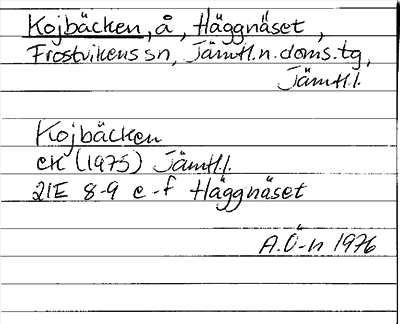 Kojbäcken, å, Häggnäset,
Frostvikens sn, Jämtl.n.doms.tg,
Jämtl.l.
Kojbäcken
ek (1975) Jämtl.l.
21E 8-9 e-f Häggnäset
A.Ö-n 1976